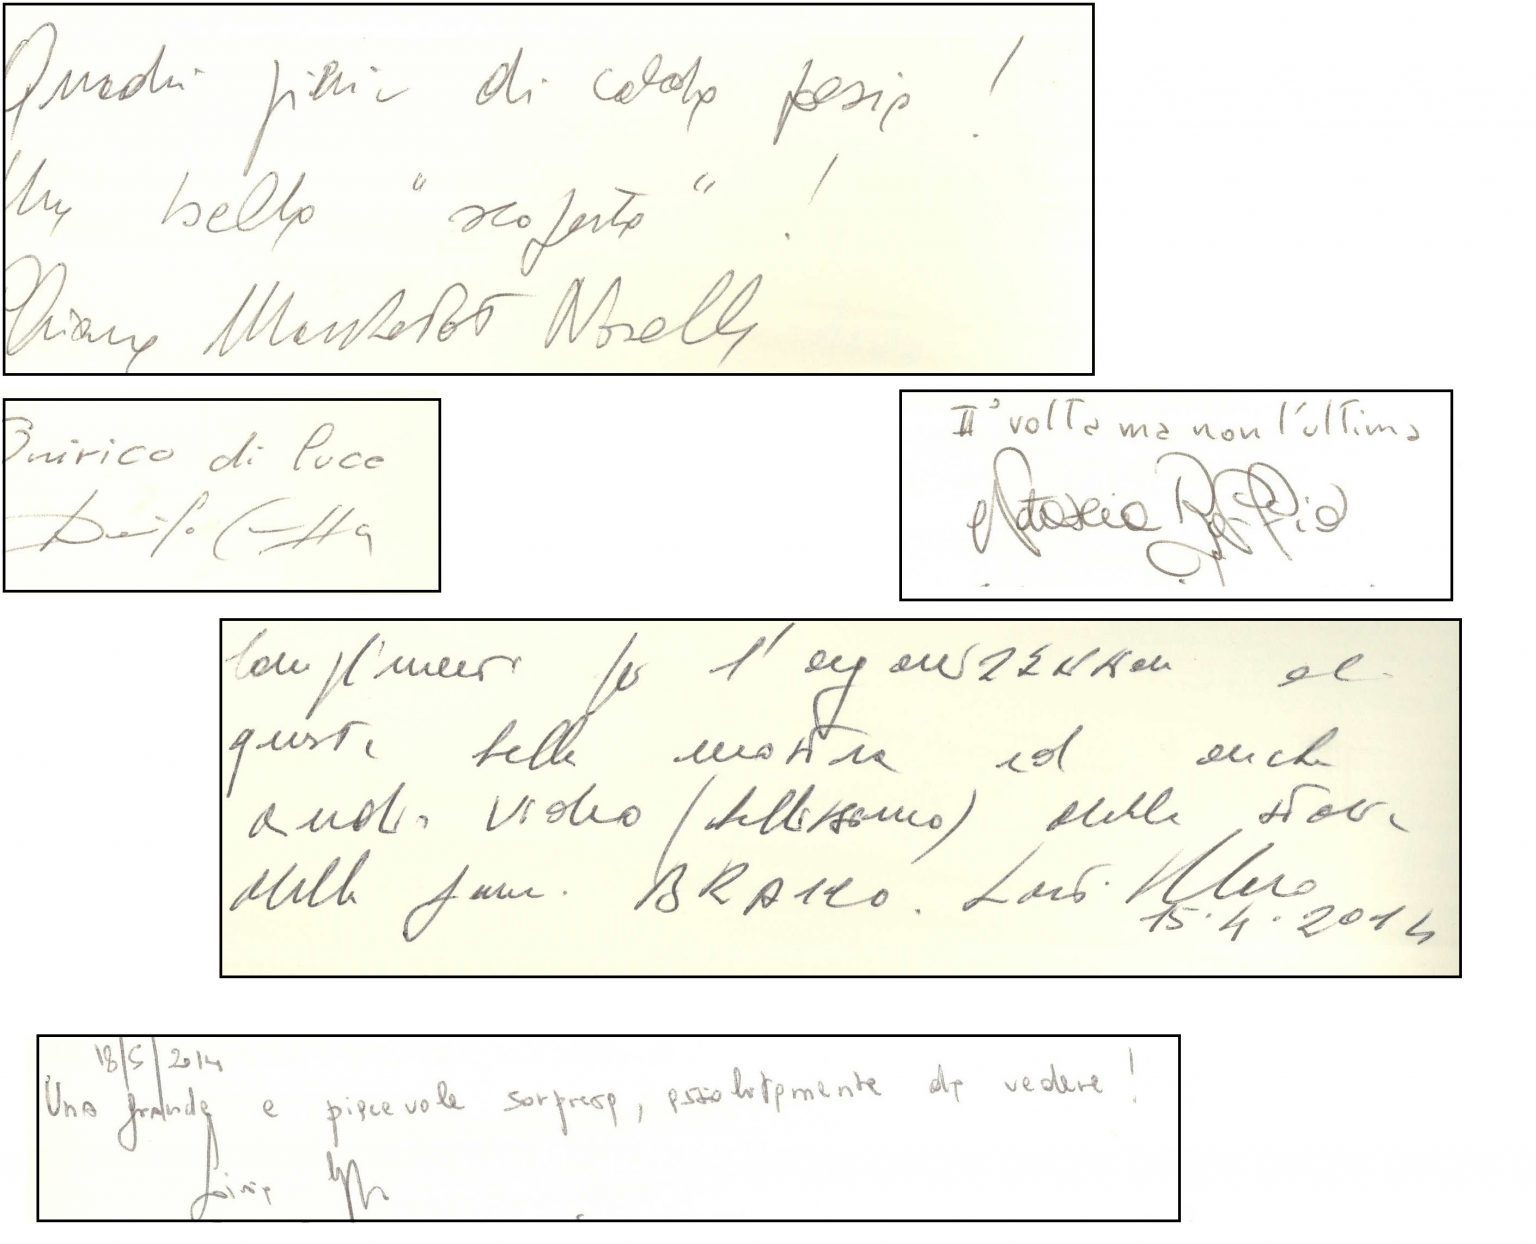 Quadri pieni di calda poesia!
Una bella "scoperta"!
Chiara
Onirico di luce
Danilo
IIª volta ma non l'ultima
Natascia
Complimenti per l'organizzazione di
questa bella mostra ed anche
audio video (bellissimo) della storia
della fam. 15.4.2014
18/5/2014
Una grande e piacevole sorpresa, assolutamente da vedere!